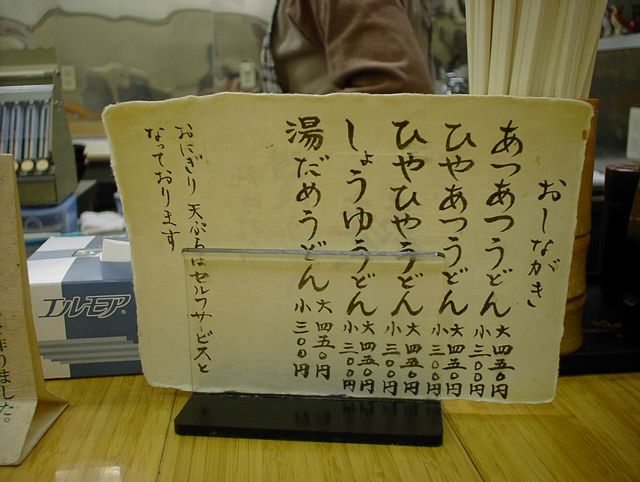 おしながき
あつあつうどん 大 四五〇円 小 三〇〇円
ひやあつうどん 大 四五〇円 小 三〇〇円
ひやひやうどん 大 四五〇円 小 三〇〇円
しょうゆうどん 大 四五〇円 小 三〇〇円
湯だめうどん 大 四五〇円 小 三〇〇円
おにぎり 天ぷらはセルフサービスと
なっております
エルモア
りました。